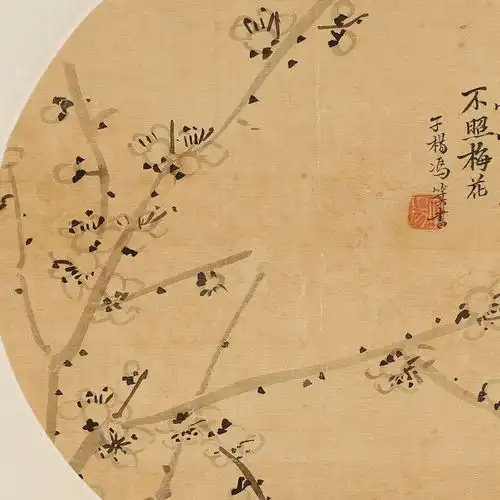 不照梅花
子楊馮箕書